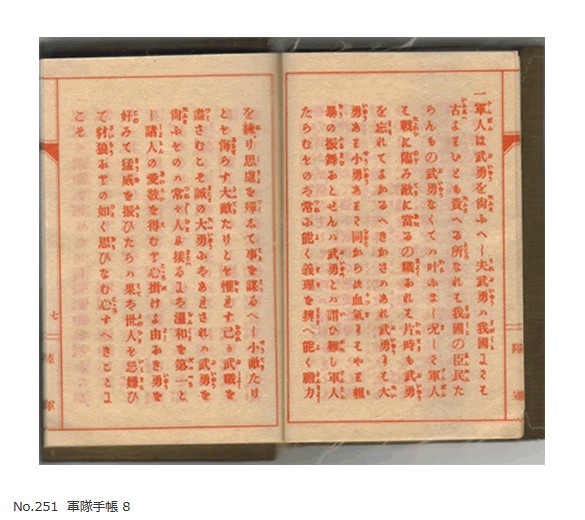 一軍人は武勇を尚ふへし夫武勇は我國にては
古よりいとも貴へる所なれは我國の臣民た
らんもの武勇なくては叶ふまし况して軍人
は戰に臨み敵に當るの職なれは片時も武勇
を忘れてよかるへきかさはあれ武勇には大
勇あり小勇ありて同からす血氣にはやり粗
暴の振舞なとせんは武勇とは謂ひ難し軍人
たらむものは常に能く義理を辨へ能く膽力
を練り思慮を殫して事を謀るへし小敵たり
とも侮らす大敵たりとも懼れす己か武職を
盡さむこそ誠の大勇にはあれされは武勇を
尚ふものは常々人に接るには溫和を第一と
し諸人の愛敬を得むと心掛けよ由なき勇を
好みて猛威を振ひたらは果は世人も忌嫌ひ
て豺狼なとの如く思ひなむ心すへきことに
こそ
七
陸軍
No.251 軍隊手帳 8